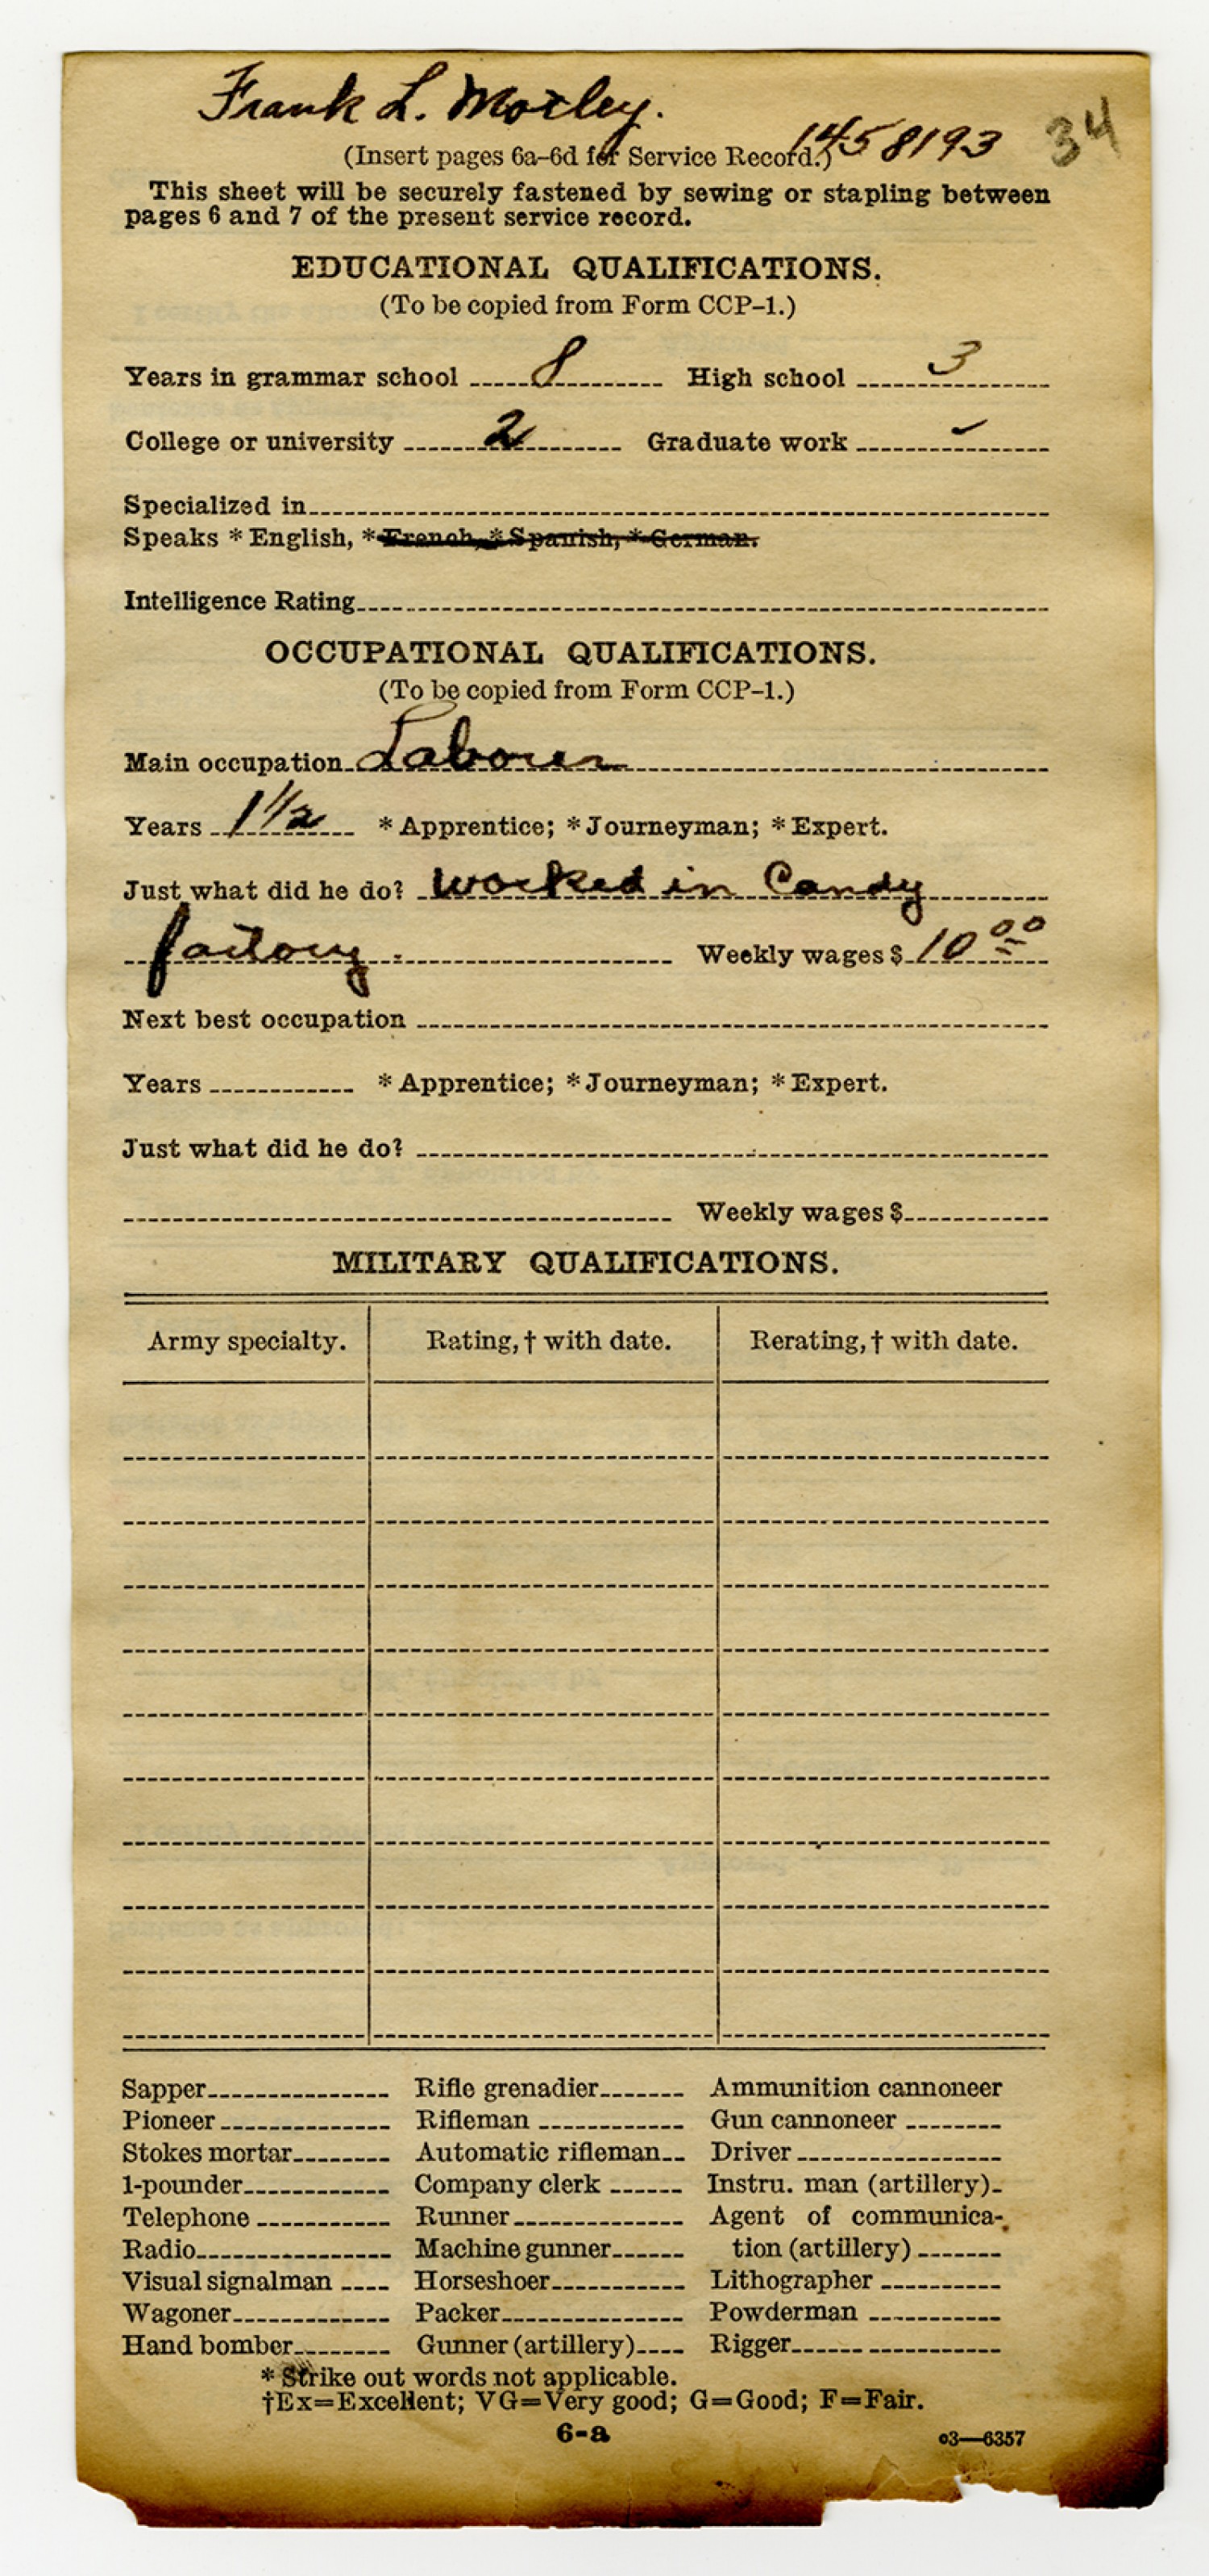 Frank L. Morley.
1458193 34
(Insert pages 6a–6d for Service Record.)
This sheet will be securely fastened by sewing or stapling between
pages 6 and 7 of the present service record.
EDUCATIONAL QUALIFICATIONS.
(To be copied from Form CCP–1.)
Years in grammar school 8 High school 3
College or university 2 Graduate work -
Specialized in
Speaks * English, * French, * Spanish, * German.
Intelligence Rating
OCCUPATIONAL QUALIFICATIONS.
(To be copied from Form CCP–1.)
Main occupation Laborer
Years 1 1/2 * Apprentice; * Journeyman; * Expert.
Just what did he do? Worked in Candy
factory. Weekly wages $ 10 00
Next best occupation
Years * Apprentice; * Journeyman; * Expert.
Just what did he do?
Weekly wages $
MILITARY QUALIFICATIONS.
Army specialty. Rating, † with date. Rerating, † with date.
Sapper Rifle grenadier Ammunition cannoneer
Pioneer Rifleman Gun cannoneer
Stokes mortar Automatic rifleman Driver
1-pounder Company clerk Instru. man (artillery)
Telephone Runner Agent of communica-
Radio Machine gunner tion (artillery)
Visual signalman Horseshoer Lithographer
Wagoner Packer Powderman
Hand bomber Gunner (artillery) Rigger
* Strike out words not applicable.
†Ex=Excellent; VG=Very good; G=Good; F=Fair.
6-a
o3—6357